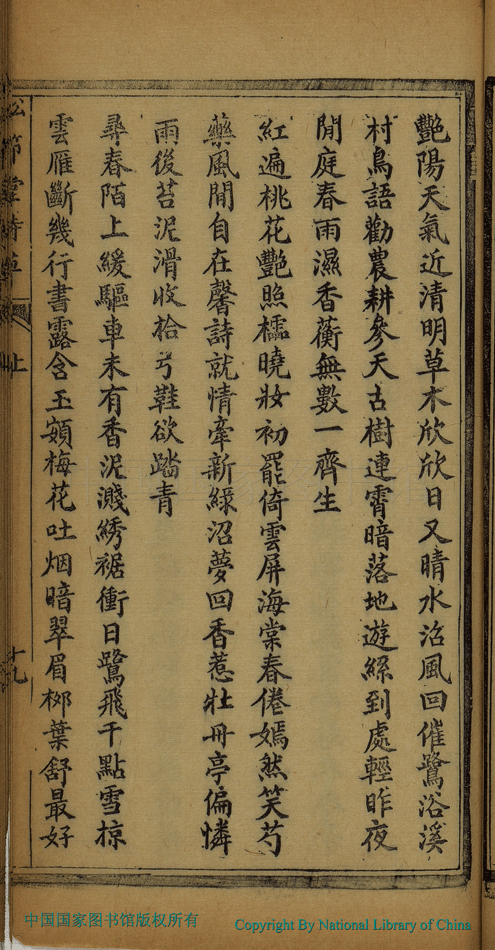 艷陽天氣近清明草木欣欣日又晴水沿風回催鷺浴溪
村鳥語勸農耕參天古樹連霄暗落地遊絲到處輕昨夜
閒庭春雨濕香蘅無數一齊生
紅遍桃花艷照檽曉妝初罷倚雲屏海棠春倦嫣然笑芍
藥風閒自在馨詩就情牽新綠沼夢回香惹牡丹亭偏憐
雨後苔泥滑收拾弓鞋欲踏青
尋春陌上緩驅車未有香泥濺綉裾衝日鷺飛千點雪掠
雲雁斷幾行書露含玉額梅花吐烟暗翠眉栁葉舒最好
上
十九
中国国家图书馆版权所有
Copyright By National Library of China